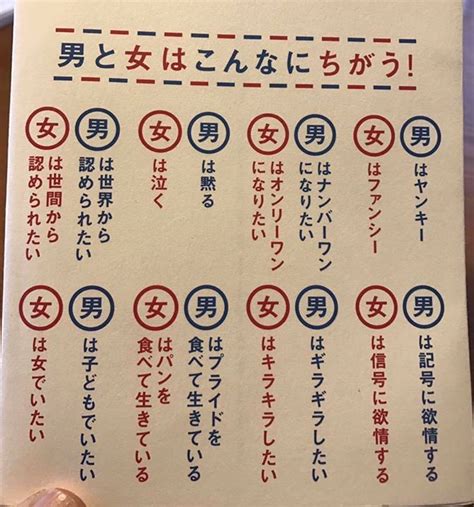 男と女はこんなにちがう!
男はヤンキー
女はファンシー
男はナンバーワン
になりたい
女はオンリーワン
になりたい
男は黙る
女は泣く
男は世界から
認められたい
女は世間から
認められたい
男は記号に欲情する
女は信号に欲情する
男はギラギラしたい
女はキラキラしたい
男はプライドを
食べて生きている
女はパンを
食べて生きている
男は子どもでいたい
女は女でいたい